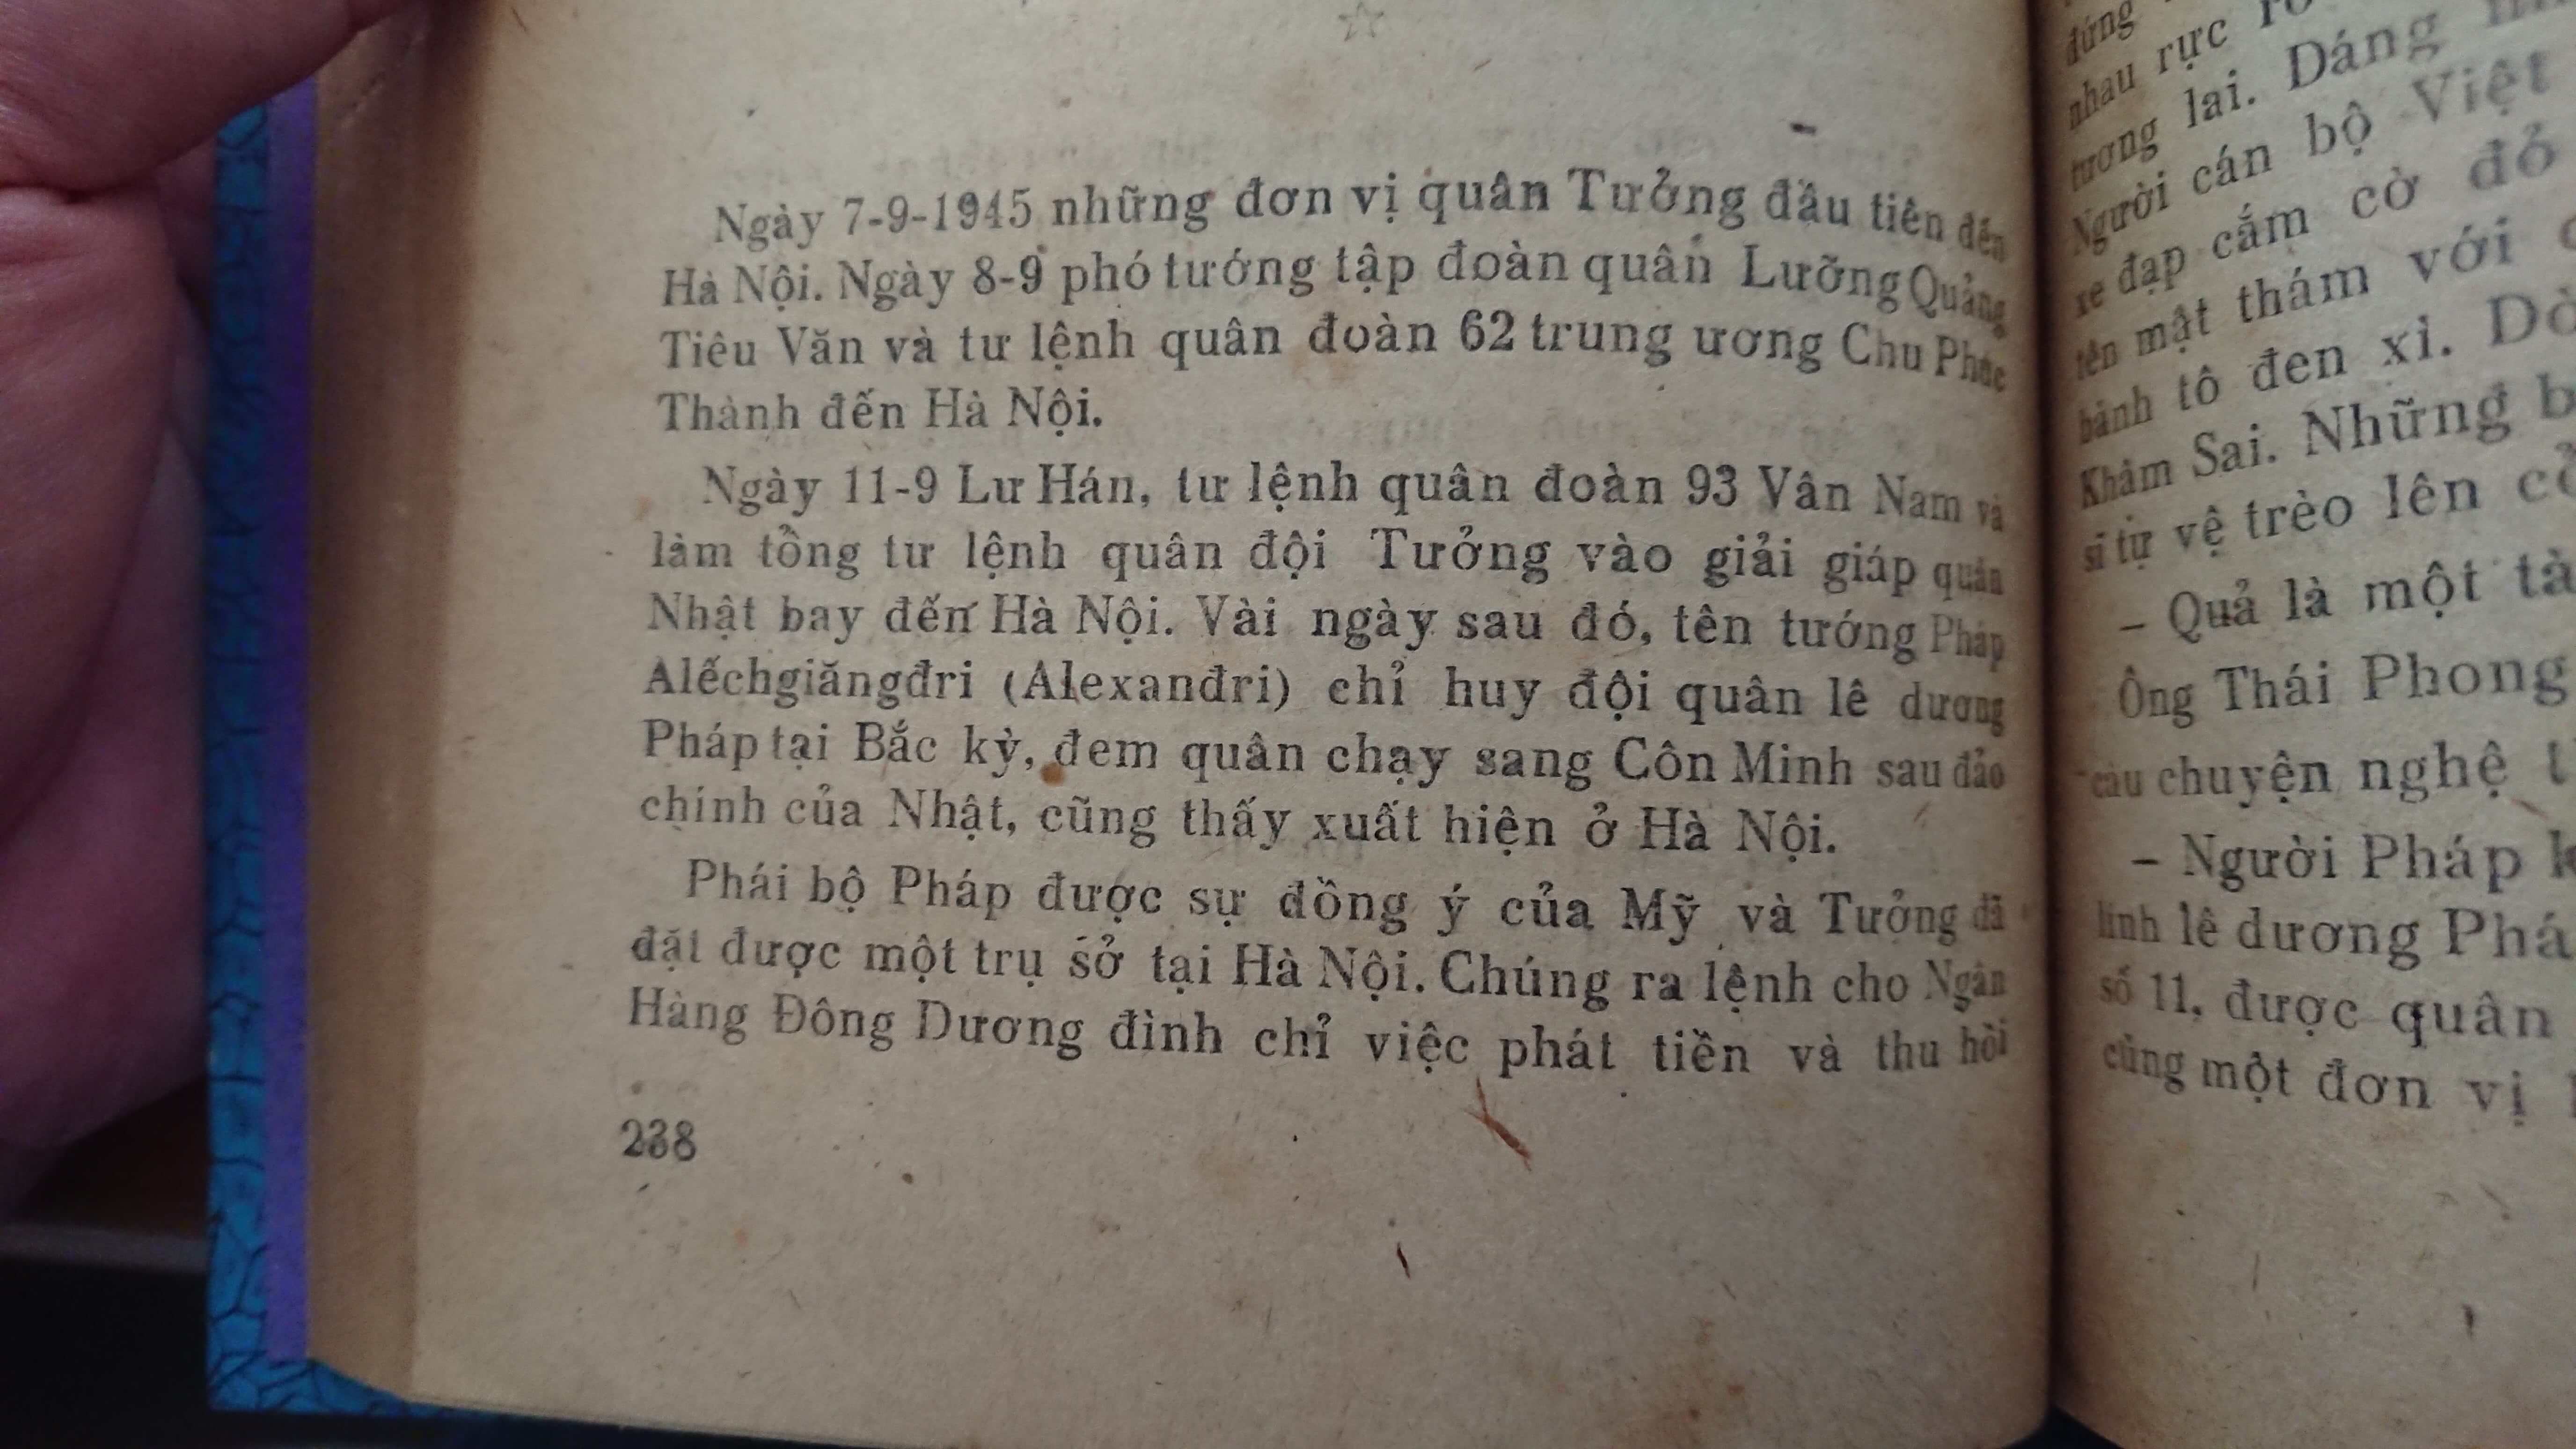 Ngày 7-9-1945 những đơn vị quân Tưởng đầu tiên đến
Hà Nội. Ngày 8-9 phó tướng tập đoàn quân Lưỡng Quảng
Tiêu Văn và tư lệnh quân đoàn 62 trung ương Chu Phúc
Thành đến Hà Nội.
Ngày 11-9 Lư Hán, tư lệnh quân đoàn 93 Vân Nam và
làm tổng tư lệnh quân đội Tưởng vào giải giáp quân
Nhật bay đến Hà Nội. Vài ngày sau đó, tên tướng Pháp
Alếchgiăngđri (Alexanđri) chỉ huy đội quân lê dương
Pháp tại Bắc kỳ, đem quân chạy sang Côn Minh sau đảo
chính của Nhật, cũng thấy xuất hiện ở Hà Nội.
Phái bộ Pháp được sự đồng ý của Mỹ và Tưởng đã
đặt được một trụ sở tại Hà Nội. Chúng ra lệnh cho Ngân
Hàng Đông Dương đình chỉ việc phát tiền và thu hồi
238
đứng
nhau rực
tương lai. Dáng
Người cán bộ Việt
xe đạp cắm cờ đỏ
tên mật thám với
bảnh tô đen xì.
Khâm Sai. Những
sĩ tự vệ trèo lên
– Quả là một
Ông Thái Phong
câu chuyện nghệ
– Người Pháp
lính lê dương
số 11, được quân
cùng một đơn vị